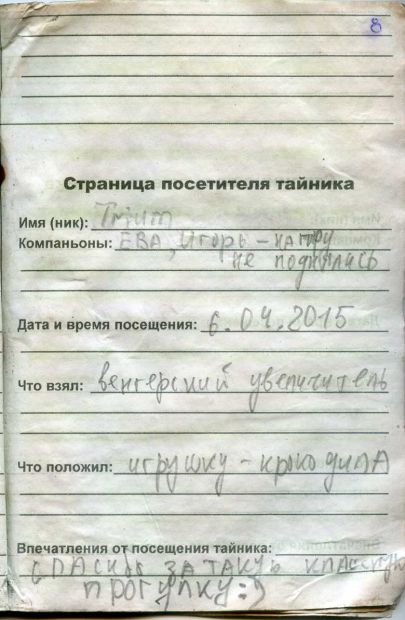 8
Страница посетителя тайника
Имя (ник):
Компаньоны: ЕВА, Игорь - на гору
не поднялись
Дата и время посещения: 6.04.2015
Что взял: венгерский увеличитель
Что положил: игрушку - крокодила
Впечатления от посещения тайника:
спасибо за такую классную
прогулку :)